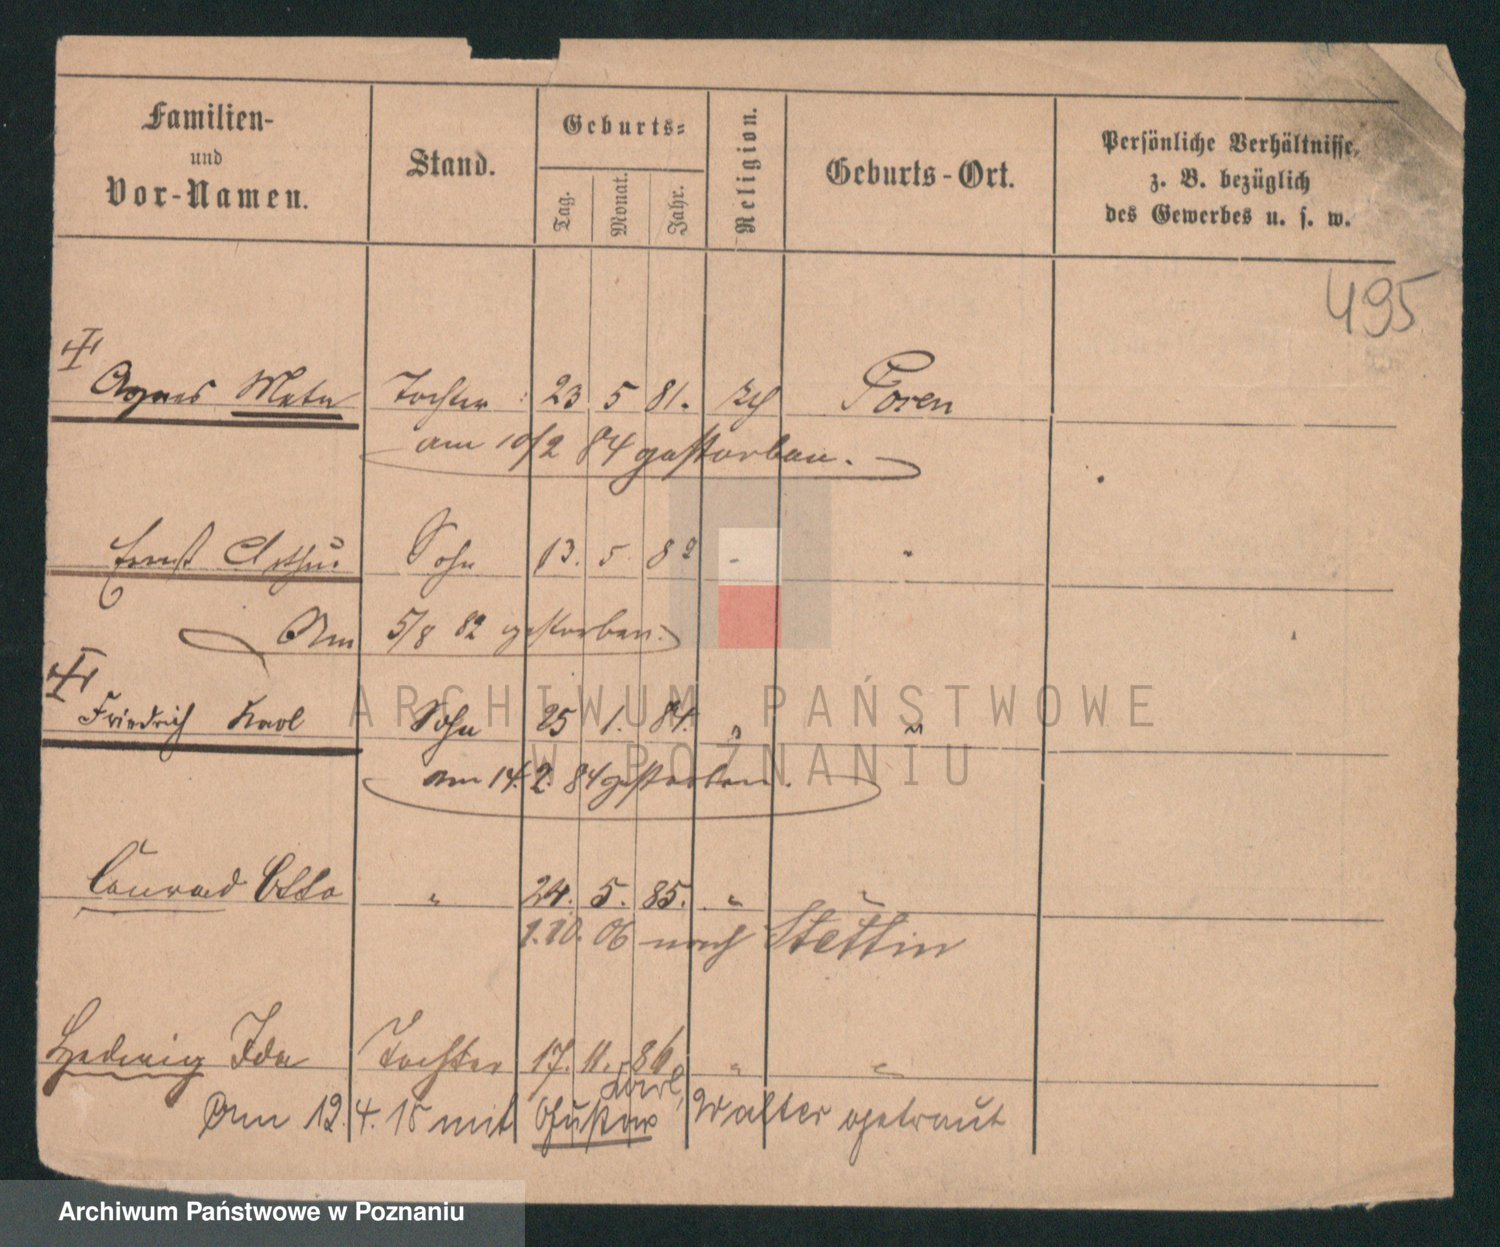 Familien-
und
Vor-Namen.
Stand.
Geburts-
Tag.
Monat.
Jahr.
Religion.
Geburts-Ort.
Persönliche Verhältnisse,
z. B. bezüglich
des Gewerbes u. s. w.
495
Agnes Meta Tochter 23 5 81. Posen
am 10/2 84 gestorben.
Ernst Arthur Sohn 13. 5. 82 " "
Am 5/8 82 gestorben.
Friedrich Karl Sohn 25 1. 84. " "
am 14. 2. 84 gestorben.
Conrad Otto " 24. 5. 85. " "
1.10. 06 nach Stettin
Hedwig Ida Tochter 17. 11. 86 " "
Karl,
Am 12. 4. 15 mit Gustav Walter getraut
ARCHIWUM PAŃSTWOWE
W POZNANIU
Archiwum Państwowe w Poznaniu